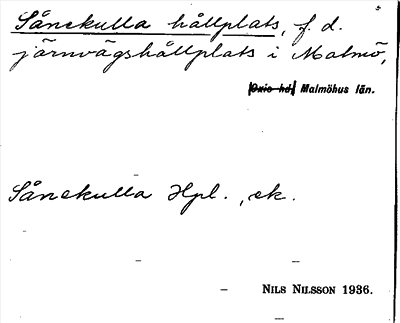 Sånekulla hållplats, f. d.
järnvägshållplats i Malmö,
Oxie hd. Malmöhus län.
Sånekulla Hpl., ek.
Nils Nilsson 1936.